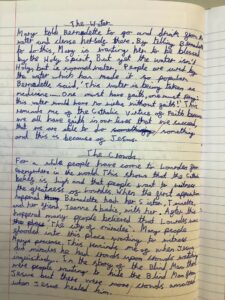 The Water
Mary told Bernadette to go and drink from the
water and cleanse herself there. By telling Bernadette
to do this, Mary is wanting her to be blessed
by the Holy Spirit. But yet the water isn't
Holy but is a normal water. People are cured by
the water which has made it so popular.
Bernadette said, "This water is being taken as
medicine..... One must have faith, one must pray:
this water would have no virtue without faith!" This
reminds me of the Catholic Virtue of Faith because
we all have faith in our lives that we succeed,
that we are able to do something
and this is because of Jesus.
The Crowds.
For a while people have come to Lourdes from
everywhere in the world. This shows that the Catholic
beliefs is high and that people want to witness
the greatness of Lourdes. When the great apparition
happened Bernadette had her sister, Toinette,
and her friend, Jeanne Abadie, with her. After the
happened many people believed that Lourdes
the place 'The city of miracles'. Many people
flooded into this place wanting to witness
Mary's presence. This reminds me of when Jesus
did miracles he had crowds upon crowds watching
impatiently. In the story of the Blind Man
were people wanting to hate the Blind Man
Jesus but there were more crowds amazed
when Jesus healed him.